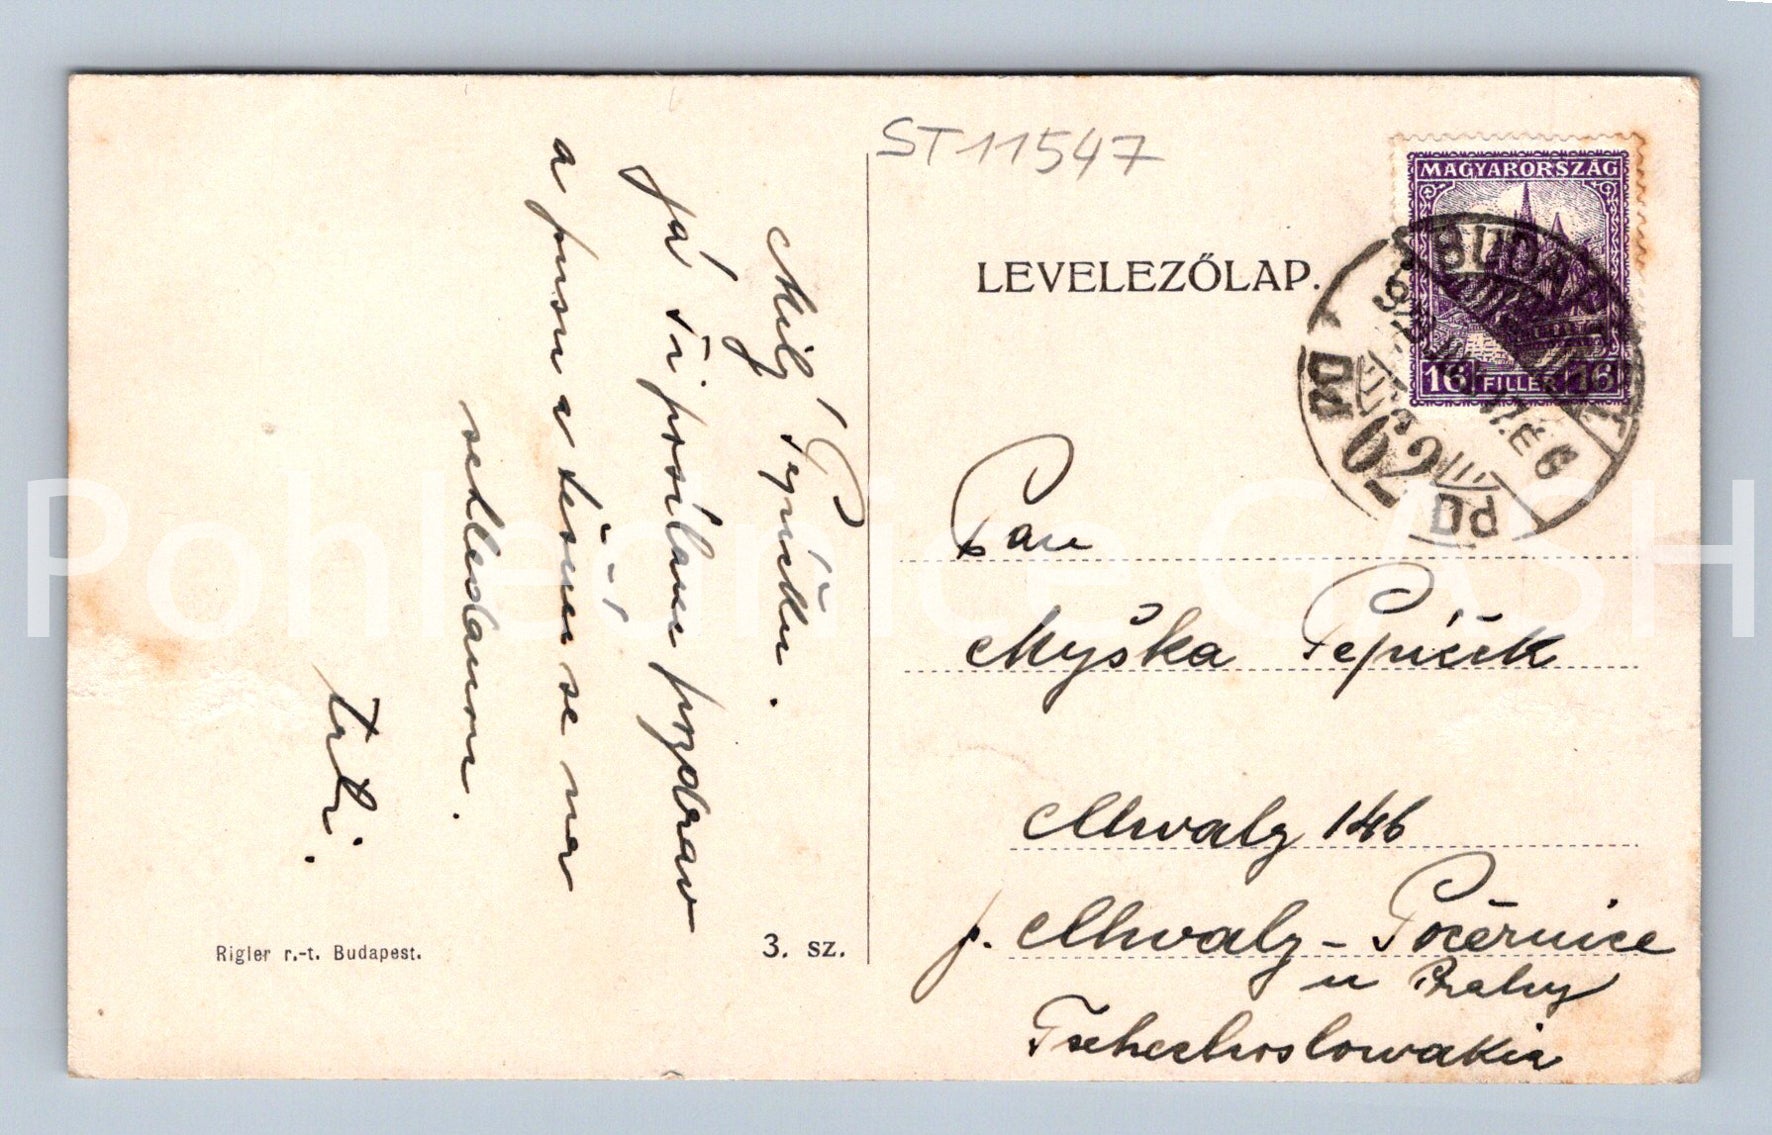 ST 11547
MAGYARORSZÁG
16 FILLÉR 16
BUDAPEST
72
LEVELEZŐLAP.
Milý Pepíčku.
Já Ti posílam pozdrav
a pusu a těším se na
shledanou.
Pan
Myška Pepíček
Chvaly 146
p. Chvaly - Počernice
u Prahy
Tschechoslowakia
Rigler r.-t. Budapest.
3. sz.
Pohlednice GASH